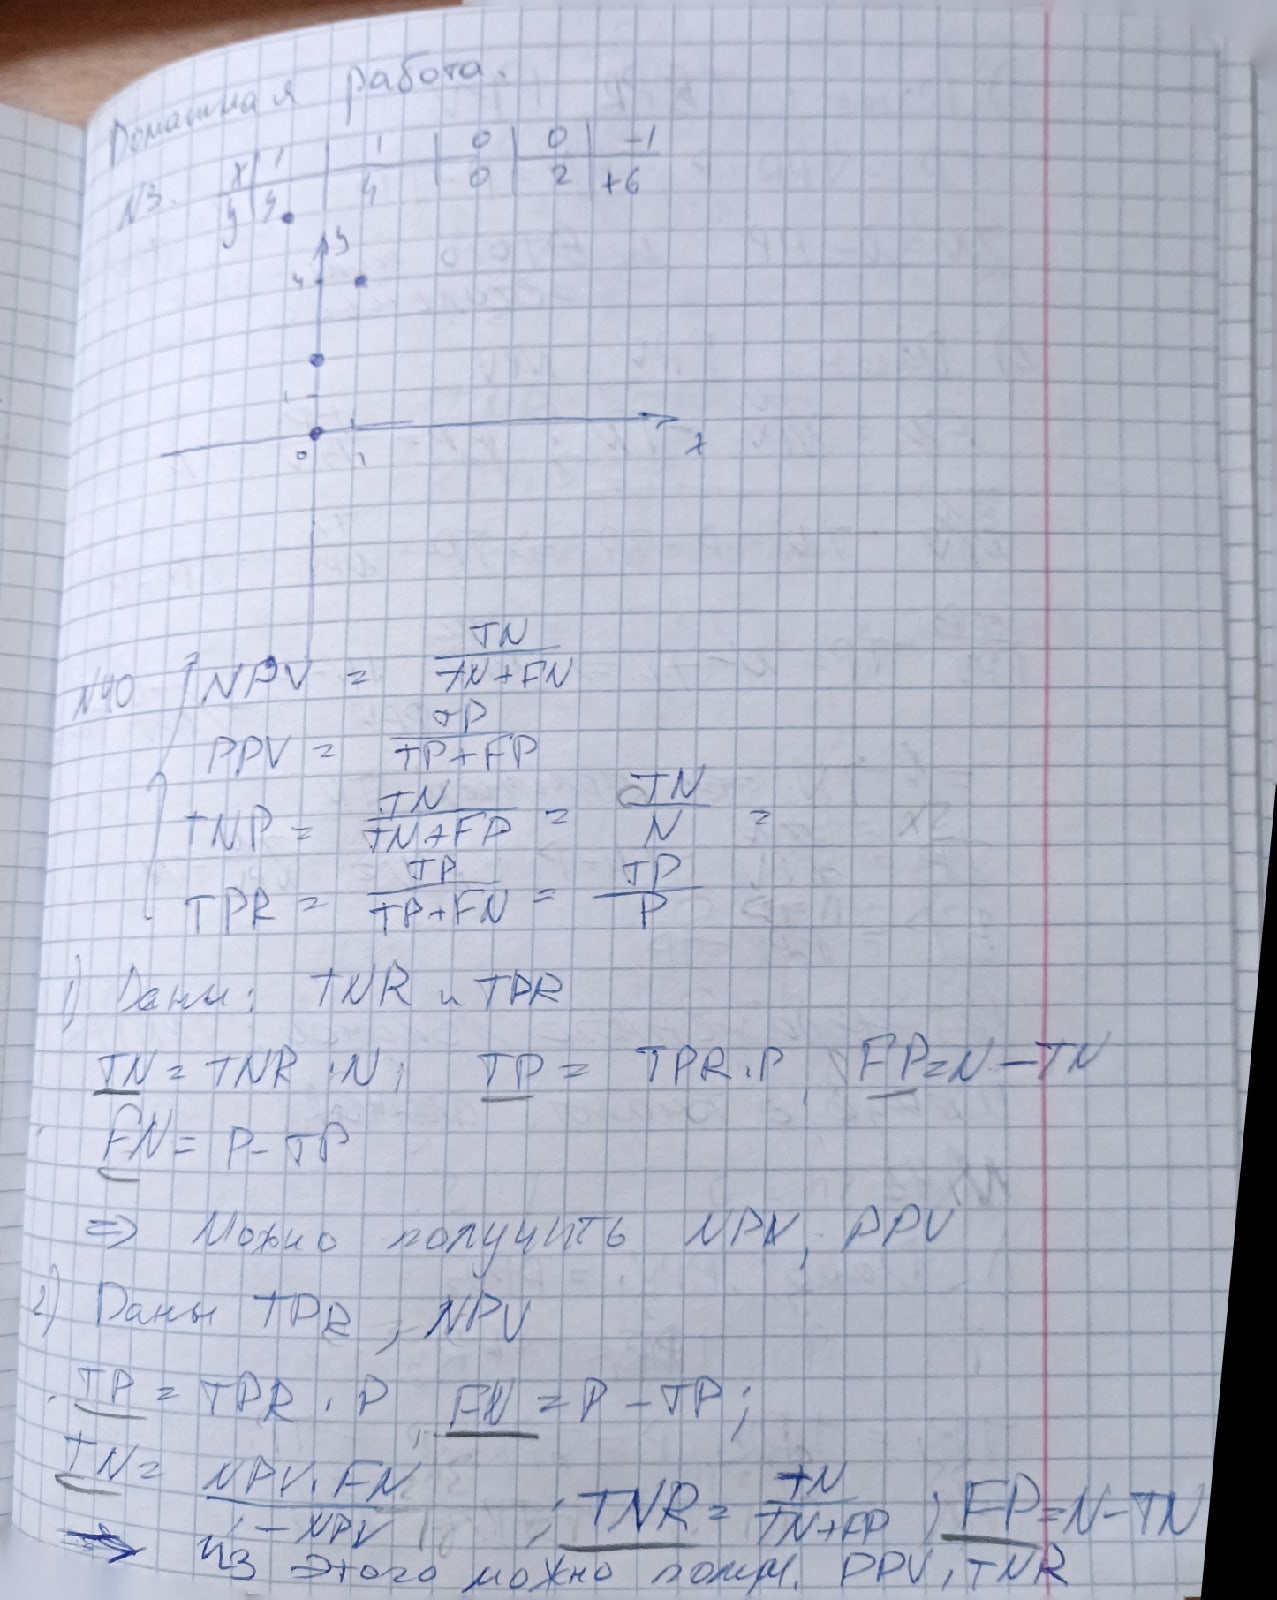 Домашняя работа.
N3. x | 1 | 1 | 0 | 0 | -1
y | 3 | 4 | 0 | 2 | +6
y
4
1
0 1 x
N40 NPV = TN/(TN+FN)
PPV = TP/(TP+FP)
TNP = TN/(TN+FP) = TN/N =
TPR = TP/(TP+FN) = TP/P
1) Даны: TNR и TPR
TN = TNR · N; TP = TPR · P FP = N - TN
FN = P - TP
=> Можно получить NPV, PPV
2) Даны TPR, NPV
TP = TPR · P FN = P - TP;
TN = NPV · FN/(1 - NPV) ; TNR = TN/(TN+FP) ; FP = N - TN
=> из этого можно получ. PPV, TNR